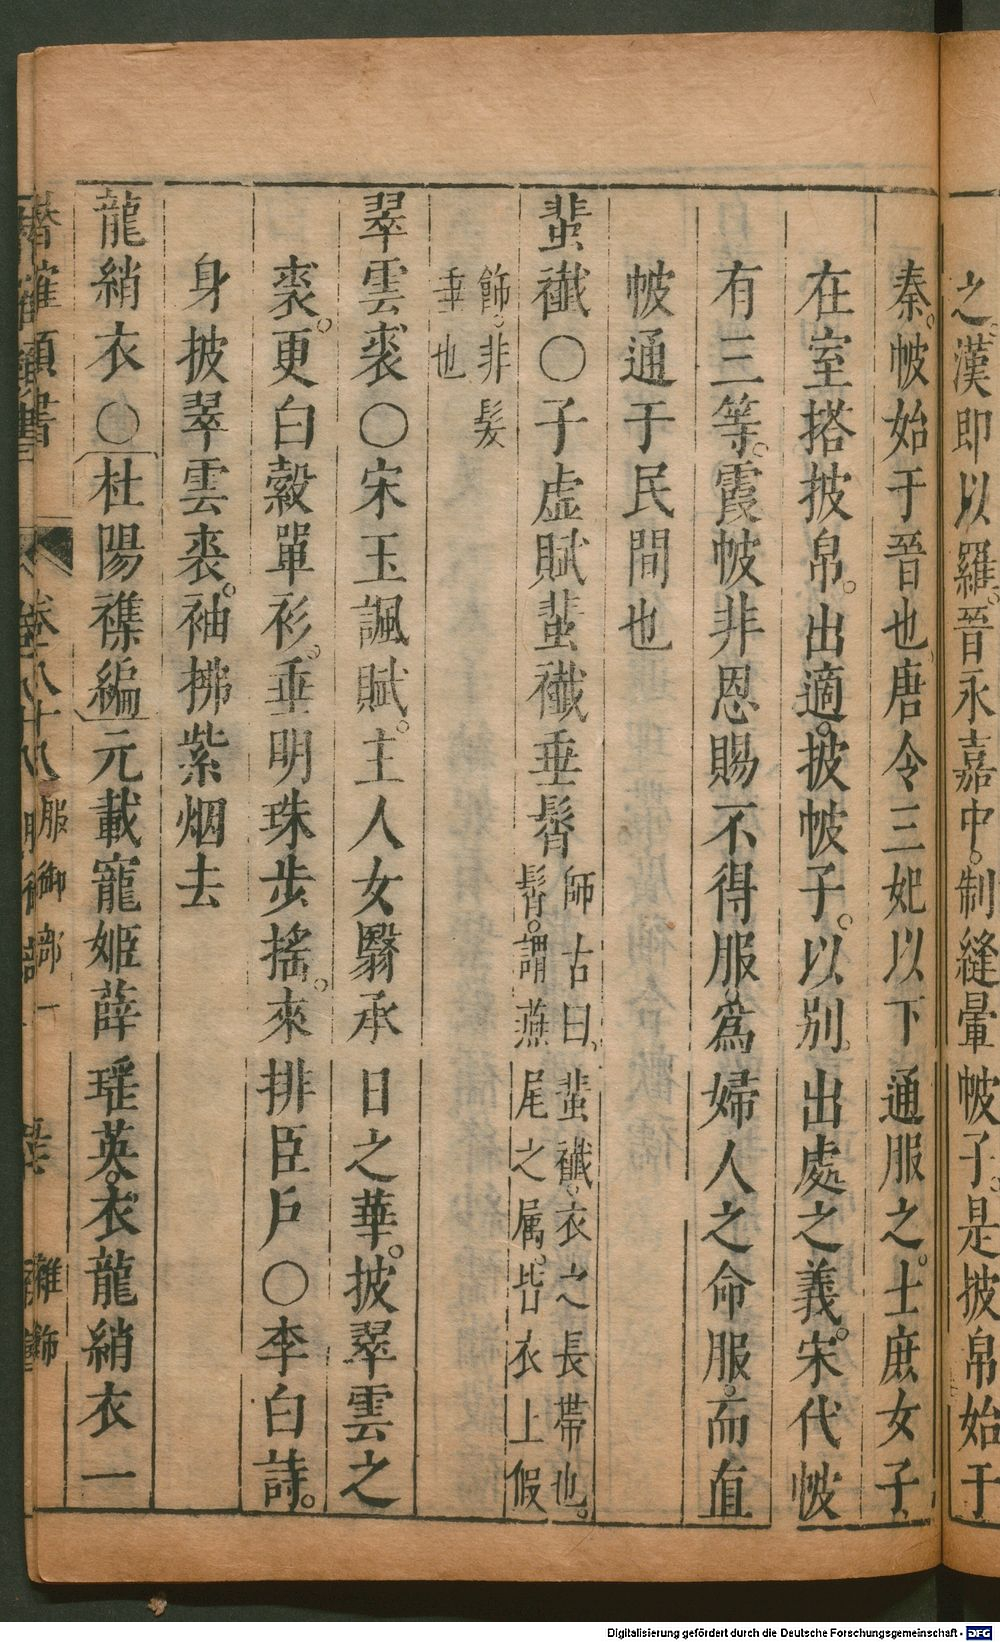 之漢即以羅晉永嘉中制縫暈帔子是披帛始于
秦帔始于晉也唐令三妃以下通服之士庶女子
在室搭披帛出適披帔子以别出處之義宋代帔
有三等霞帔非恩賜不得服爲婦人之命服而直
帔通于民間也
蜚襳〇子虚賦蜚襳垂髾師古曰蜚襳衣之長帶也
髾謂燕尾之属皆衣上假
飾非髮
垂也
翠雲裘〇宋玉諷賦主人女翳承日之華披翠雲之
裘更白縠單衫垂明珠步搖來排臣戶〇李白詩
身披翠雲裘袖拂紫烟去
龍綃衣〇杜陽襍編元載寵姬薛瑶英衣龍綃衣一
潛確類書 卷八十八 服御部一 雜飾
Digitalisierung gefördert durch die Deutsche Forschungsgemeinschaft - DFG